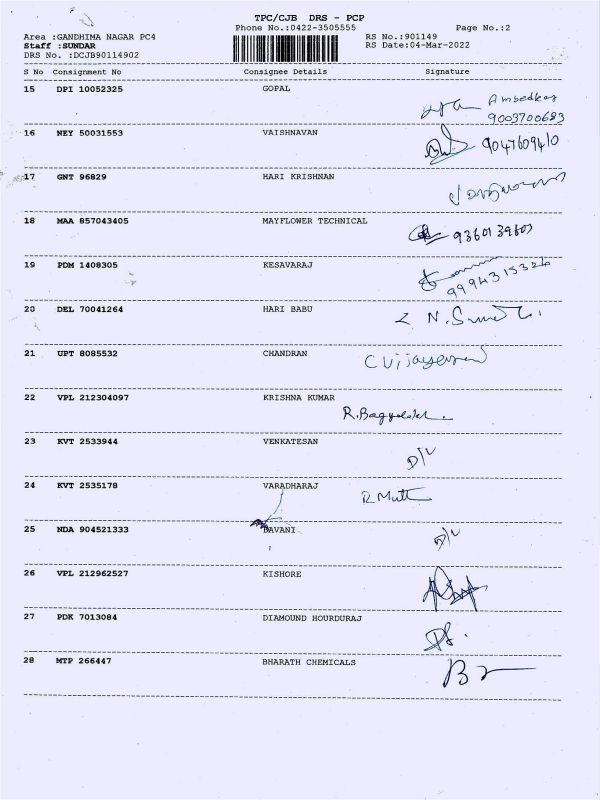 TPC/CJB DRS - PCP
Phone No.:0422-3505555 Page No.:2
Area :GANDHIMA NAGAR PC4 RS No.:901149
Staff :SUNDAR RS Date:04-Mar-2022
DRS No. :DCJB90114902
S No Consignment No Consignee Details Signature
15 DPI 10052325 GOPAL
Ambedkar
9003700683
16 NEY 50031553 VAISHNAVAN
9047609410
17 GNT 96829 HARI KRISHNAN
18 MAA 857043405 MAYFLOWER TECHNICAL
9360139603
19 PDM 1408305 KESAVARAJ
9994315326
20 DEL 70041264 HARI BABU
21 UPT 8085532 CHANDRAN
22 VPL 212304097 KRISHNA KUMAR
23 KVT 2533944 VENKATESAN
D/L
24 KVT 2535178 VARADHARAJ
R Muth
25 NDA 904521333 BAVANI
D/L
26 VPL 212962527 KISHORE
27 PDK 7013084 DIAMOUND HOURDURAJ
28 MTP 266447 BHARATH CHEMICALS